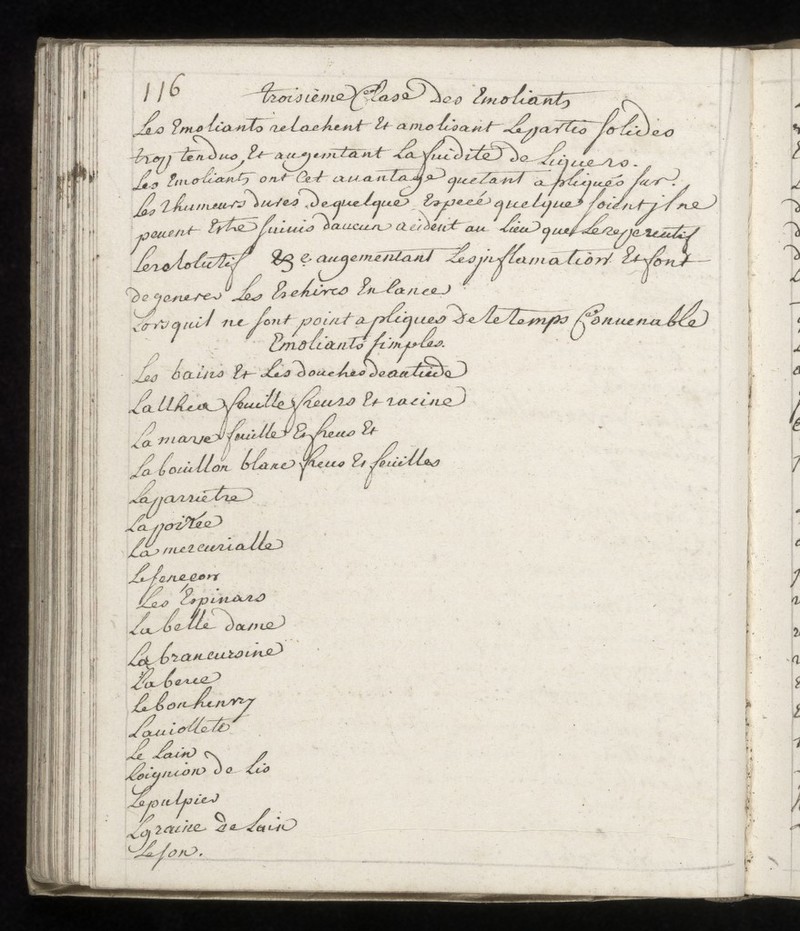 116 troisième Clase Des Emoliants
Les Emoliants relachent Et amolisant Lepartis solides
trop tenduo, Et augemtant La fuidité De Liquers.
Les Emoliants ont Cet auantage quetant apliqués sur.
les Thumeurs dures Dequelque Espece quelques soient jl ne
peuent Estre suiuis daucun acident au Lieu que Lerepercutif
Lerolulutif & e augementant Lesjnflamation Et font
Degenerer Les Erehires En Cancer
Lorsquil ne sont point apliques De le temps Conuenable
Emoliants simples.
Les bains Et Les Douches deautiede
Lalthea feuille fleurs Et racine
La marue feuille Et fleus Et
La bouillon blanc fleus Et feuilles
Laparietre
La poirée
La mercurialle
Le seneçon
Les Epinars
La belle dame
La brancursine
La berce
Le bon henry
Lauiollete
Le Lain
Loignion De Lis
Lepulpier
Lgraine De Lain
Le son.